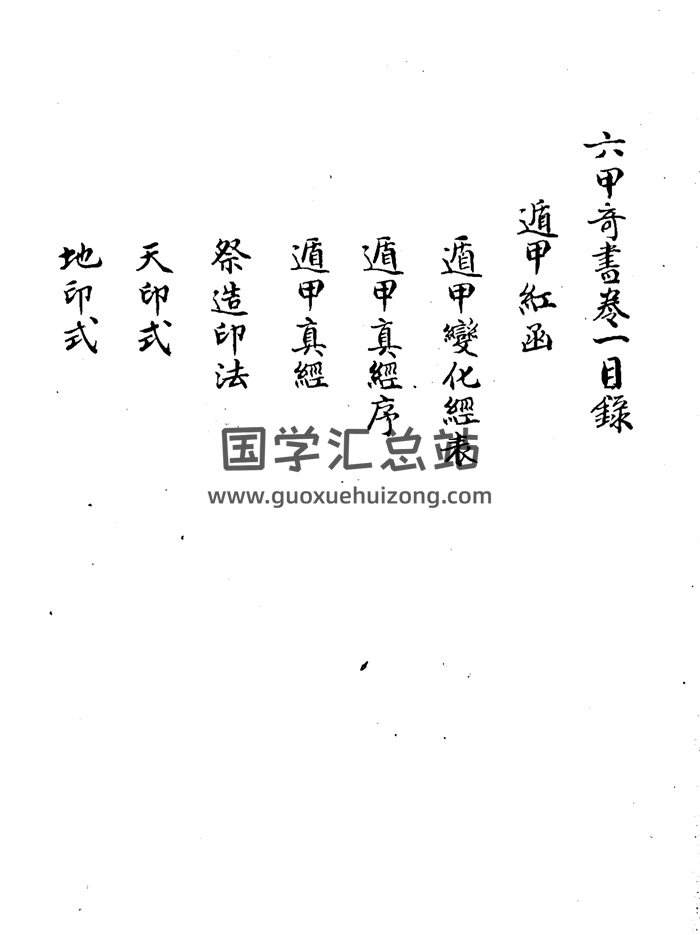 六甲奇書卷一目錄
遁甲紅函
遁甲變化經表
遁甲真經序
遁甲真經
祭造印法
天印式
地印式
国学汇总站
www.guoxuehuizong.com